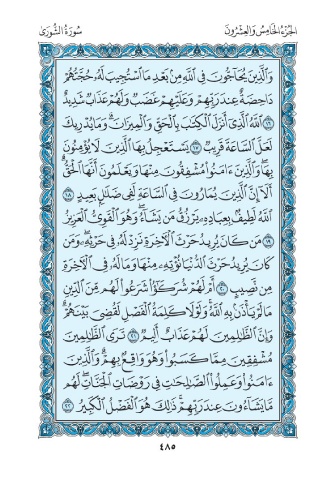 الجزء الخامس والعشرون
سورة الشورى
وَالَّذِينَ يُحَاجُّونَ فِي اللَّهِ مِنْ بَعْدِ مَا اسْتُجِيبَ لَهُ حُجَّتُهُمْ
دَاحِضَةٌ عِنْدَ رَبِّهِمْ وَعَلَيْهِمْ غَضَبٌ وَلَهُمْ عَذَابٌ شَدِيدٌ
١٦ اللَّهُ الَّذِي أَنْزَلَ الْكِتَٰبَ بِالْحَقِّ وَالْمِيزَانَ وَمَا يُدْرِيكَ
لَعَلَّ السَّاعَةَ قَرِيبٌ ١٧ يَسْتَعْجِلُ بِهَا الَّذِينَ لَا يُؤْمِنُونَ
بِهَا وَالَّذِينَ ءَامَنُوا مُشْفِقُونَ مِنْهَا وَيَعْلَمُونَ أَنَّهَا الْحَقُّ
أَلَا إِنَّ الَّذِينَ يُمَارُونَ فِي السَّاعَةِ لَفِي ضَلَٰلٍ بَعِيدٍ ١٨
اللَّهُ لَطِيفٌ بِعِبَادِهِ يَرْزُقُ مَنْ يَشَاءُ وَهُوَ الْقَوِيُّ الْعَزِيزُ
١٩ مَنْ كَانَ يُرِيدُ حَرْثَ الْآخِرَةِ نَزِدْ لَهُ فِي حَرْثِهِ وَمَنْ
كَانَ يُرِيدُ حَرْثَ الدُّنْيَا نُؤْتِهِ مِنْهَا وَمَا لَهُ فِي الْآخِرَةِ
مِنْ نَصِيبٍ ٢٠ أَمْ لَهُمْ شُرَكَٰٓؤُا شَرَعُوا لَهُمْ مِنَ الدِّينِ
مَا لَمْ يَأْذَنْ بِهِ اللَّهُ وَلَوْلَا كَلِمَةُ الْفَصْلِ لَقُضِيَ بَيْنَهُمْ
وَإِنَّ الظَّٰلِمِينَ لَهُمْ عَذَابٌ أَلِيمٌ ٢١ تَرَى الظَّٰلِمِينَ
مُشْفِقِينَ مِمَّا كَسَبُوا وَهُوَ وَاقِعٌ بِهِمْ وَالَّذِينَ
ءَامَنُوا وَعَمِلُوا الصَّٰلِحَٰتِ فِي رَوْضَاتِ الْجَنَّاتِ لَهُمْ
مَا يَشَاءُونَ عِنْدَ رَبِّهِمْ ذَٰلِكَ هُوَ الْفَضْلُ الْكَبِيرُ ٢٢
٤٨٥